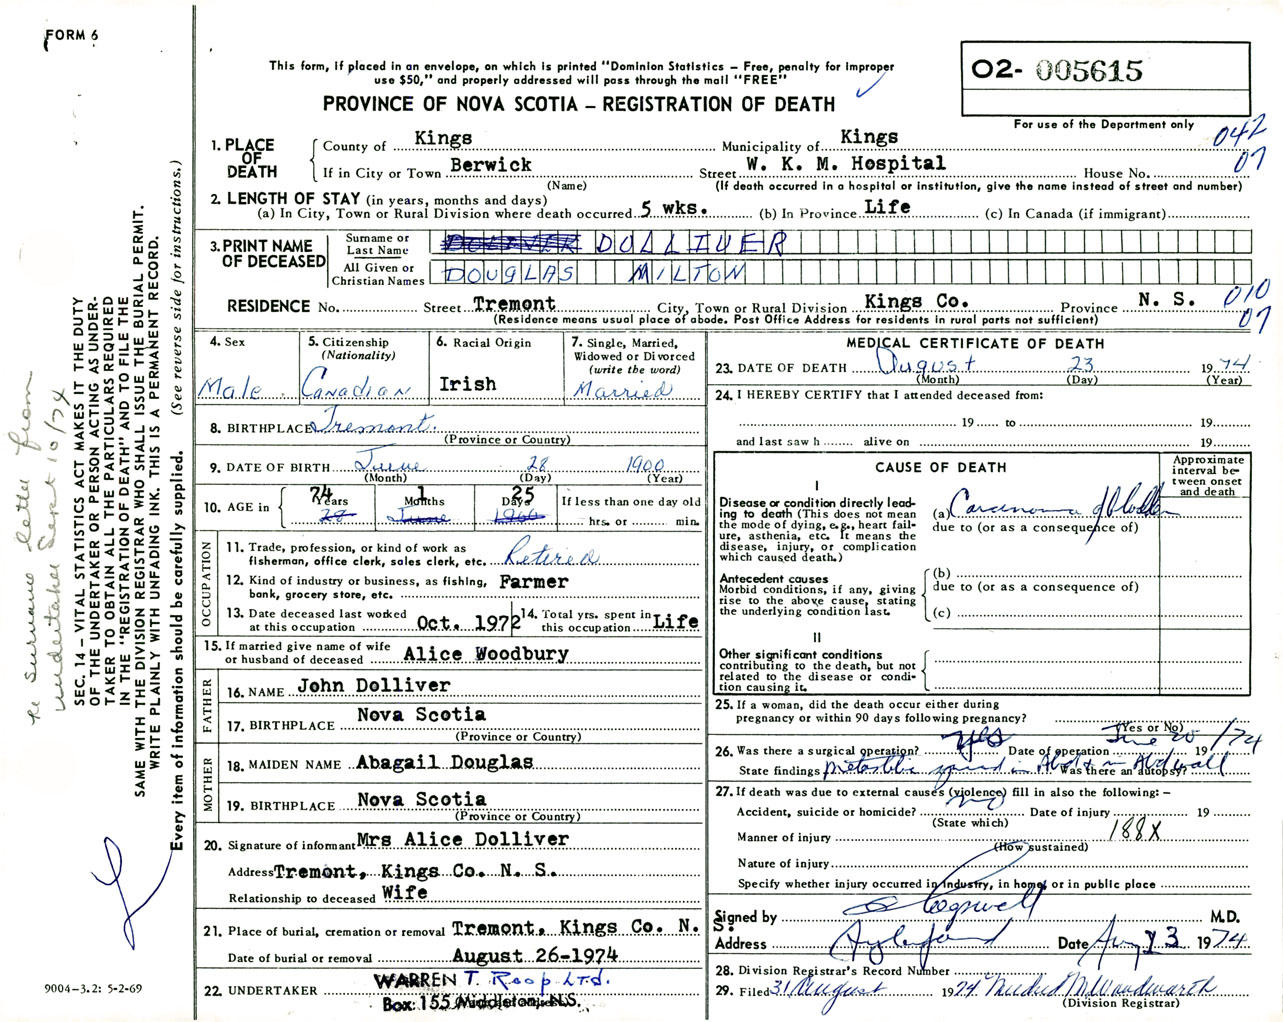 FORM 6
This form, if placed in an envelope, on which is printed "Dominion Statistics – Free, penalty for improper
use $50," and properly addressed will pass through the mail "FREE"
PROVINCE OF NOVA SCOTIA – REGISTRATION OF DEATH
02- 005615
For use of the Department only
042
07
1. PLACE OF DEATH
County of Kings Municipality of Kings
If in City or Town Berwick Street W. K. M. Hospital House No.
(Name) (If death occurred in a hospital or institution, give the name instead of street and number)
2. LENGTH OF STAY (in years, months and days)
(a) In City, Town or Rural Division where death occurred 5 wks. (b) In Province Life (c) In Canada (if immigrant)
3. PRINT NAME OF DECEASED
Surname or Last Name DOLLIVER
All Given or Christian Names DOUGLAS MILTON
RESIDENCE No. Street Tremont City, Town or Rural Division Kings Co. Province N. S.
(Residence means usual place of abode. Post Office Address for residents in rural parts not sufficient)
010
07
4. Sex
Male
5. Citizenship (Nationality)
Canadian
6. Racial Origin
Irish
7. Single, Married, Widowed or Divorced (write the word)
Married
8. BIRTHPLACE Tremont.
(Province or Country)
9. DATE OF BIRTH June 28 1900
(Month) (Day) (Year)
10. AGE in
74 Years 28
1 Months June
25 Days 1900
If less than one day old
hrs. or min.
OCCUPATION
11. Trade, profession, or kind of work as
fisherman, office clerk, sales clerk, etc. Retired
12. Kind of industry or business, as fishing, Farmer
bank, grocery store, etc.
13. Date deceased last worked
at this occupation Oct. 1972
14. Total yrs. spent in
this occupation Life
15. If married give name of wife
or husband of deceased Alice Woodbury
FATHER
16. NAME John Dolliver
17. BIRTHPLACE Nova Scotia
(Province or Country)
MOTHER
18. MAIDEN NAME Abagail Douglas
19. BIRTHPLACE Nova Scotia
(Province or Country)
20. Signature of informant Mrs Alice Dolliver
Address Tremont, Kings Co. N. S.
Relationship to deceased Wife
21. Place of burial, cremation or removal Tremont, Kings Co. N. S.
Date of burial or removal August 26-1974
22. UNDERTAKER WARREN T. Roop LTd.
Box 155 Middleton, N.S.
MEDICAL CERTIFICATE OF DEATH
23. DATE OF DEATH August 23 1974
(Month) (Day) (Year)
24. I HEREBY CERTIFY that I attended deceased from:
19 to 19
and last saw h alive on 19
CAUSE OF DEATH
Approximate interval between onset and death
I
Disease or condition directly lead-
ing to death (This does not mean
the mode of dying, e.g., heart fail-
ure, asthenia, etc. It means the
disease, injury, or complication
which caused death.)
(a) Carcinoma of Bladder
due to (or as a consequence of)
Antecedent causes
Morbid conditions, if any, giving
rise to the above cause, stating
the underlying condition last.
(b)
due to (or as a consequence of)
(c)
II
Other significant conditions
contributing to the death, but not
related to the disease or condi-
tion causing it.
25. If a woman, did the death occur either during
pregnancy or within 90 days following pregnancy?
(Yes or No)
26. Was there a surgical operation? yes Date of operation June 20 19 /74
State findings in Abd + in Abd wall Was there an autopsy?
27. If death was due to external causes (violence) fill in also the following: –
Accident, suicide or homicide? no Date of injury 19
(State which)
Manner of injury 188X
(How sustained)
Nature of injury
Specify whether injury occurred in industry, in home, or in public place
Signed by Cogswell M.D.
Address Aylesford Date Aug 23 1974
28. Division Registrar's Record Number
29. Filed 31 August 1974 Mildred M. Woodworth
(Division Registrar)
9004-3.2: 5-2-69
SEC. 14 – VITAL STATISTICS ACT MAKES IT THE DUTY
OF THE UNDERTAKER OR PERSON ACTING AS UNDER-
TAKER TO OBTAIN ALL THE PARTICULARS REQUIRED
IN THE "REGISTRATION OF DEATH" AND TO FILE THE
SAME WITH THE DIVISION REGISTRAR WHO SHALL ISSUE THE BURIAL PERMIT.
WRITE PLAINLY WITH UNFADING INK. THIS IS A PERMANENT RECORD.
Every item of information should be carefully supplied. (See reverse side for instructions.)
Re surname letter from
undertaker Sept 10/74